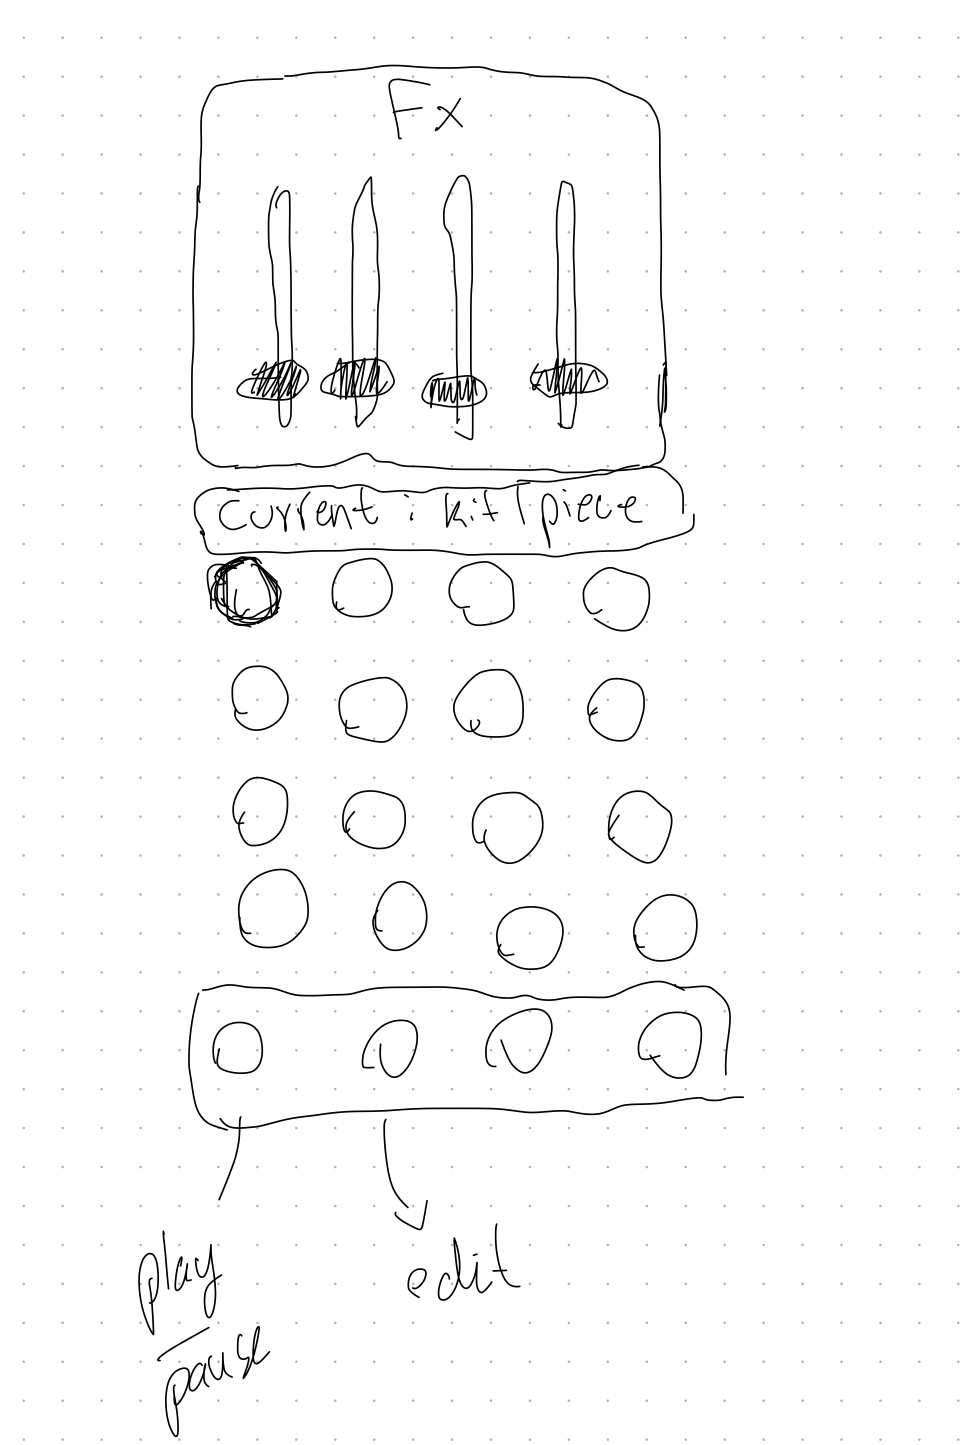 Fx
current : kit / piece
play
pause
edit